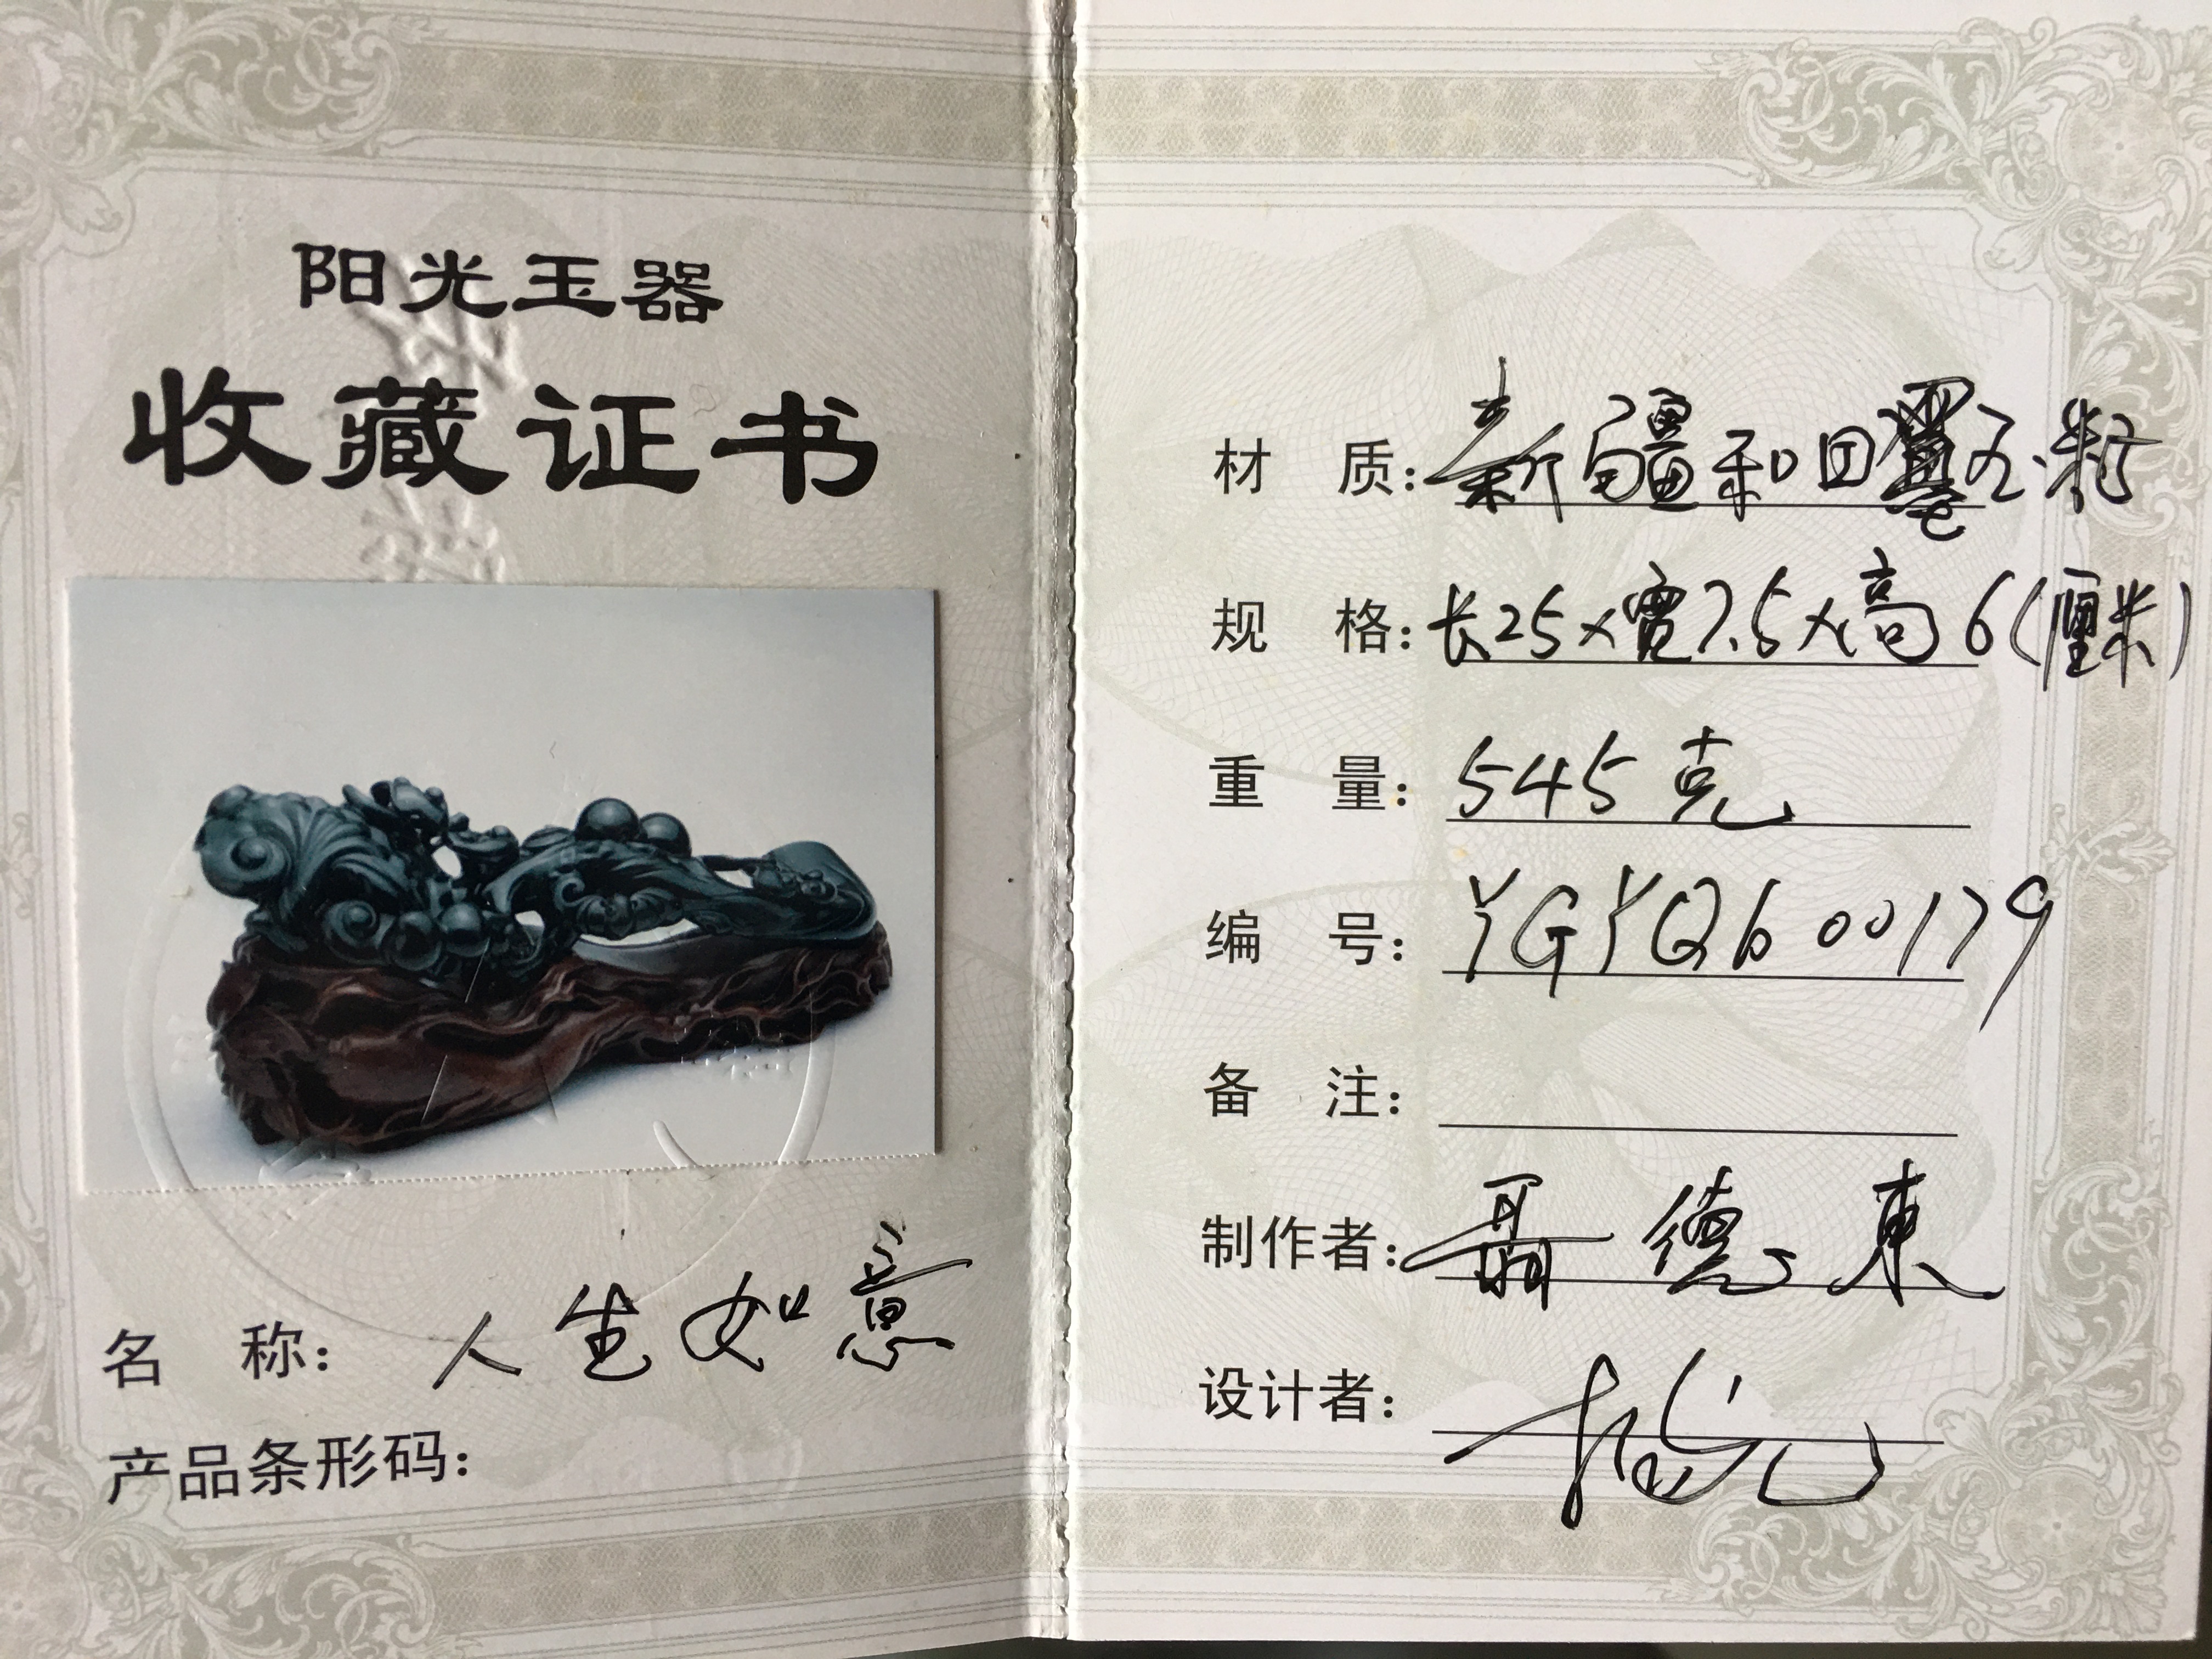 阳光玉器
收藏证书
名 称： 人生如意
产品条形码：
材 质： 新疆和田墨玉籽
规 格： 长25×寬7.5×高6(厘米)
重 量： 545克
编 号： YGYQ600179
备 注：
制作者： 聶德東
设计者：